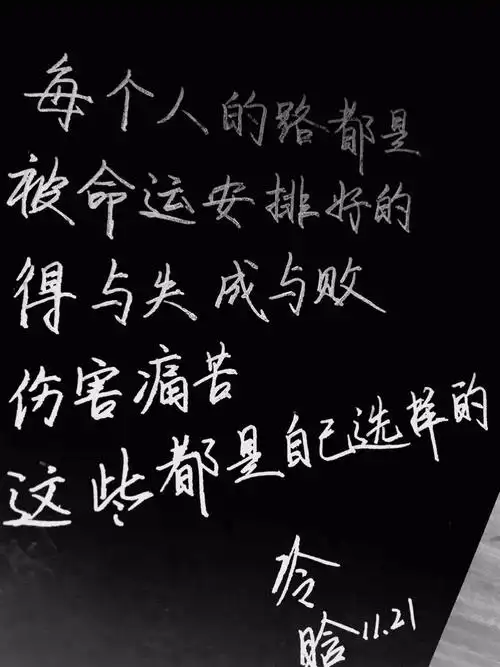 每个人的路都是
被命运安排好的
得与失 成与败
伤害痛苦
这些都是自己选择的
冷
晗 11.21